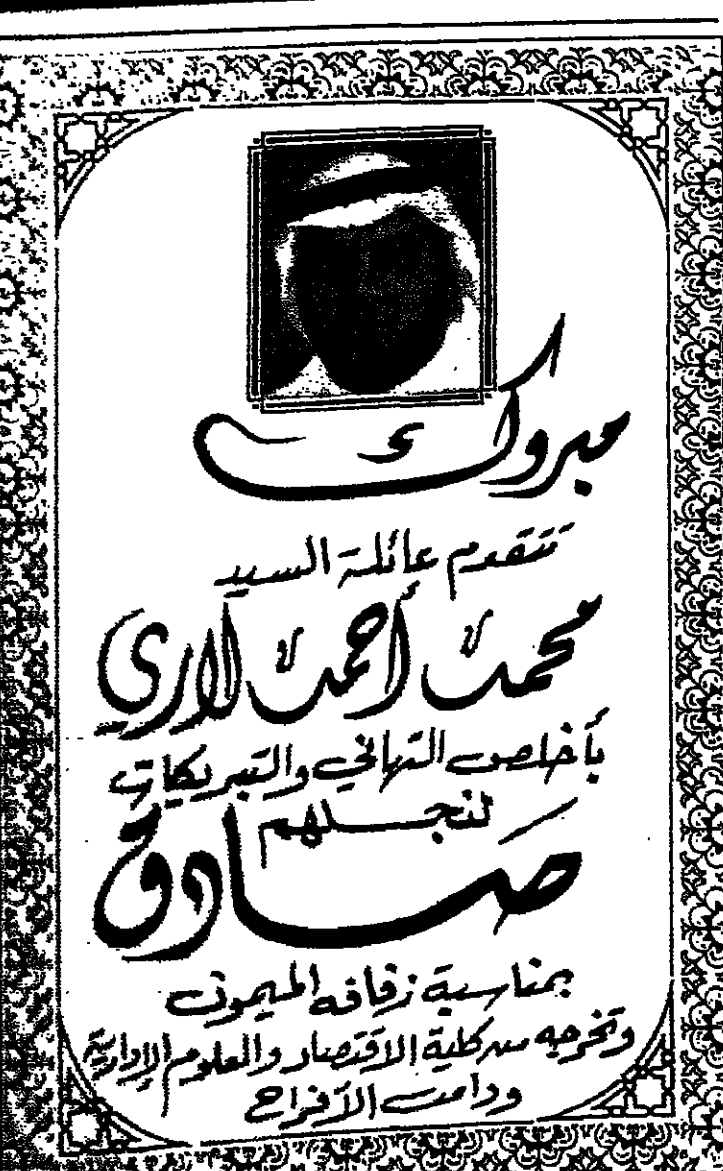 مبروك
تتقدم عائلة السيد
محمد أحمد لاري
بأخلص التهاني والتبريكات
لنجلهم
صادق
بمناسبة زفافه الميمون
وتخرجه من كلية الاقتصاد والعلوم الإدارية
ودامت الأفراح